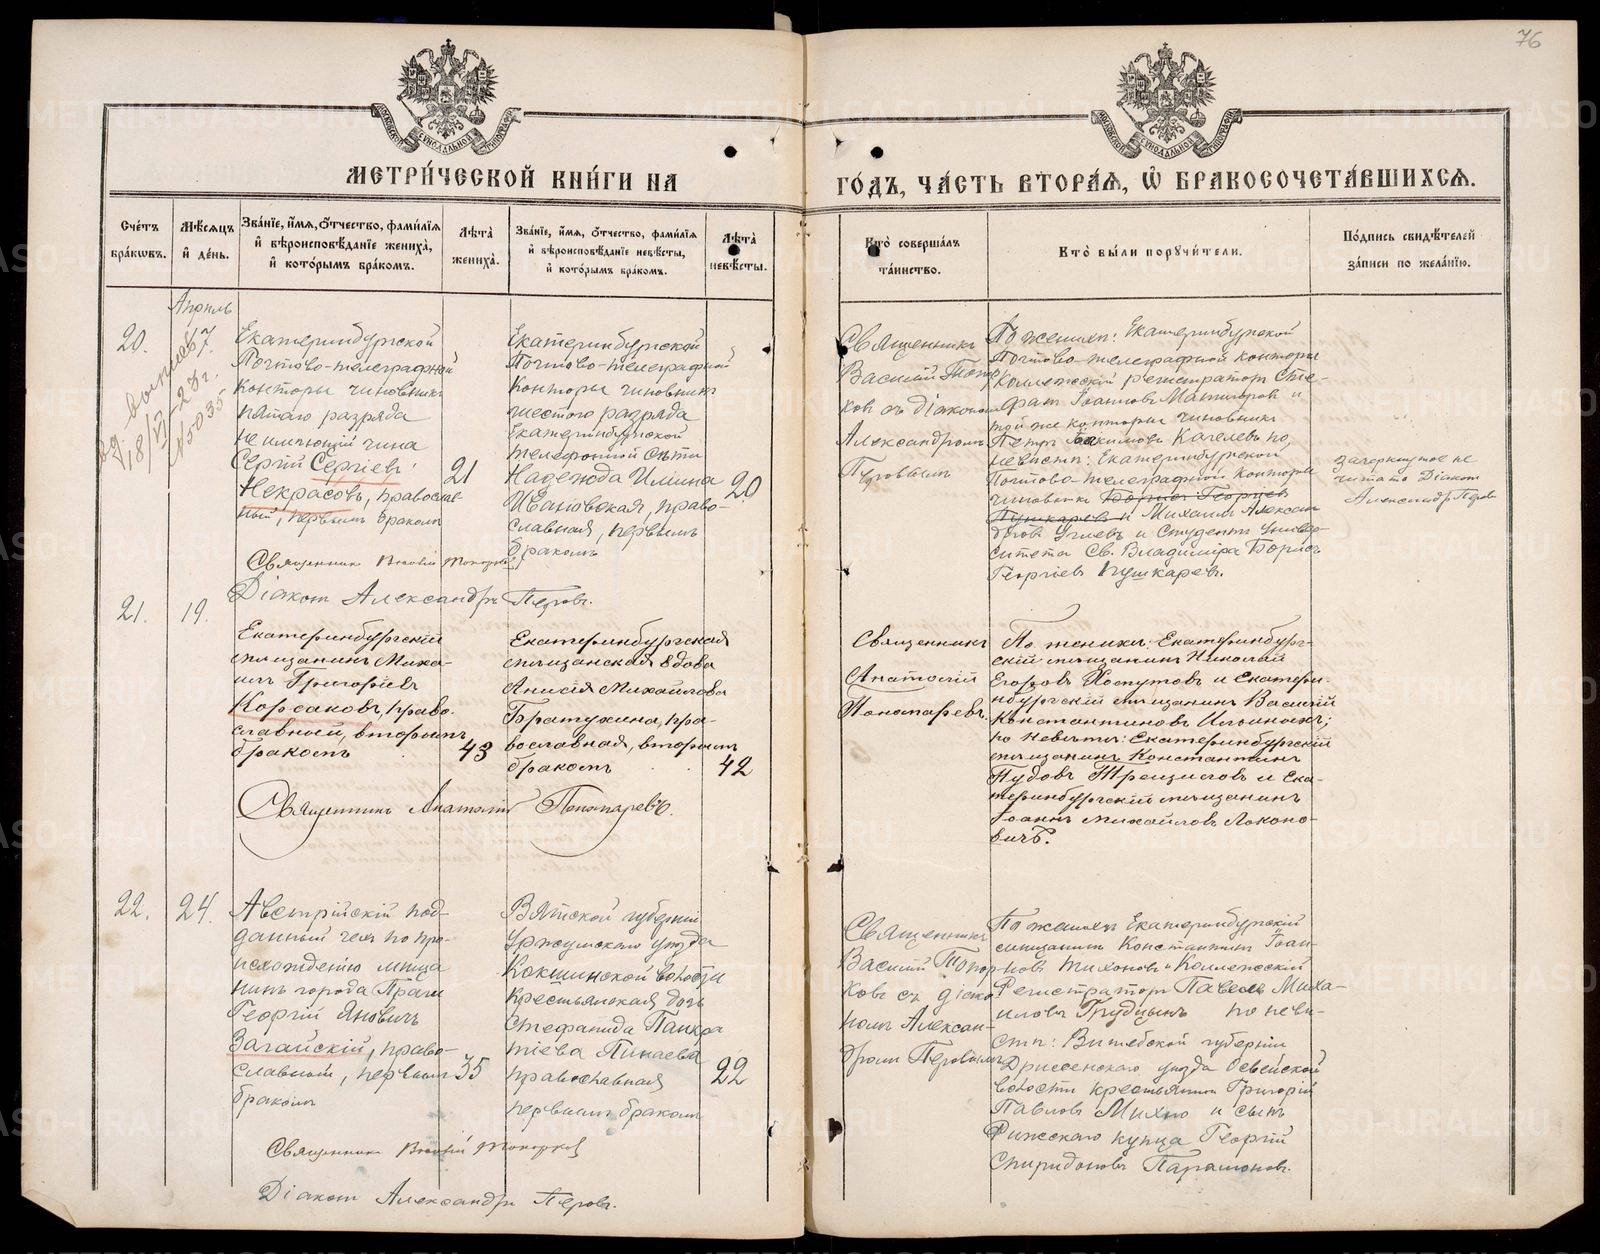 76
МЕТРИ́ЧЕСКОЙ КНИ́ГИ НА
ГО́ДЪ, ЧА́СТЬ ВТОРА́Я, Ѿ БРАКОСОЧЕТА́ВШИХСЯ.
Сче́тъ бра́кѡвъ.
Мѣ́сяцъ и́ де́нь.
Зва́нїе, и́мя, ѻ́тчество, фами́лїя и́ вѣроисповѣ́данїе жениха̀, и́ кото́рымъ бра́комъ.
Лѣ́та̀ жениха̀.
Зва́нїе, и́мя, ѻ́тчество, фами́лїя и́ вѣроисповѣ́данїе невѣ́сты, и́ кото́рымъ бра́комъ.
Лѣ́та̀ невѣ́сты.
Кто̀ соверша́лъ та́инство.
Кто̀ бы́ли порꙋчи́тели.
По́дпись свидѣ́телей за́писи по жела́нїю.
Апрѣль
20.
7.
18/VI-25 г.
№ 5035
Екатеринбургской
Почтово-телеграфной
конторы чиновникъ
пятаго разряда
не имѣющій чина
Сергій Сергіевъ
Некрасовъ, православ-
ный, первымъ бракомъ
21
Екатеринбургской
Почтово-телеграфной
конторы чиновникъ
шестого разряда
Екатеринбургской
телефонной сѣти
Надежда Ильина
Ивановская, право-
славная, первымъ
бракомъ
20
Священникъ
Василій Топор
ковъ съ діакономъ
Александромъ
Перовымъ
По женихѣ: Екатеринбургской
Почтово-телеграфной конторы
Коллежскій регистраторъ Сте-
фанъ Іоанновъ и
той же конторы чиновникъ
Петръ Іоакимовъ Качелевъ по
невѣстѣ: Екатеринбургской
Почтово-телеграфной конторы
чиновники Борисъ Георгіев
Пушкаревъ и Михаилъ Алексан
дровъ Углевъ и Студентъ Универ-
ситета Св. Владиміра Борисъ
Георгіевъ Пушкаревъ.
Зачеркнутое не
читать Діаконъ
Александръ Перовъ
Священникъ Василій Топорковъ
Діаконъ Александръ Перовъ.
21.
19.
Екатеринбургскій
мѣщанинъ Миха-
илъ Григоріевъ
Корсаковъ, право-
славный, вторымъ
бракомъ
43
Екатеринбургская
мѣщанская вдова
Анисія Михайлова
Братухина, пра-
вославная, вторымъ
бракомъ
42
Священникъ
Анатолій
Пономаревъ.
По женихѣ: Екатеринбург-
скій мѣщанинъ Николай
Егоровъ Хомутовъ и Екатери-
нбургскій мѣщанинъ Василій
Константиновъ Ильиныхъ;
по невѣстѣ: Екатеринбургскій
мѣщанинъ Константинъ
Пудовъ Трещиловъ и Ека-
теринбургскій мѣщанинъ
Іоаннъ Михайловъ Локоно-
вичъ.
Священникъ Анатолій Пономаревъ.
22.
24.
Австрійскій под-
данный чехъ по про-
исхожденію мѣща
нинъ города Праги
Георгій Яновичъ
Загайскій, право-
славный, первымъ
бракомъ
35
Вятской губерніи
Уржумскаго уѣзда
Кокшинской волости
крестьянская дочь
Стефанида Панкра
тіева Пинаева
православная
первымъ бракомъ
22
Священникъ
Василій Топор
ковъ съ діако
номъ Алексан-
дромъ Перовымъ
По женихѣ Екатеринбургскій
мѣщанинъ Константинъ Іоан-
новъ Тихоновъ и Коллежскій
Регистраторъ Павелъ Миха-
иловъ Грудцынъ по невѣ-
стѣ: Витебской губерніи
Дриссенскаго уѣзда Освейской
волости крестьянинъ Григорій
Павловъ Михно и сынъ
Рижскаго купца Георгій
Спиридоновъ Парамоновъ.
Священникъ Василій Топорковъ
Діаконъ Александръ Перовъ.
METRIKI.GASO-URAL.RU